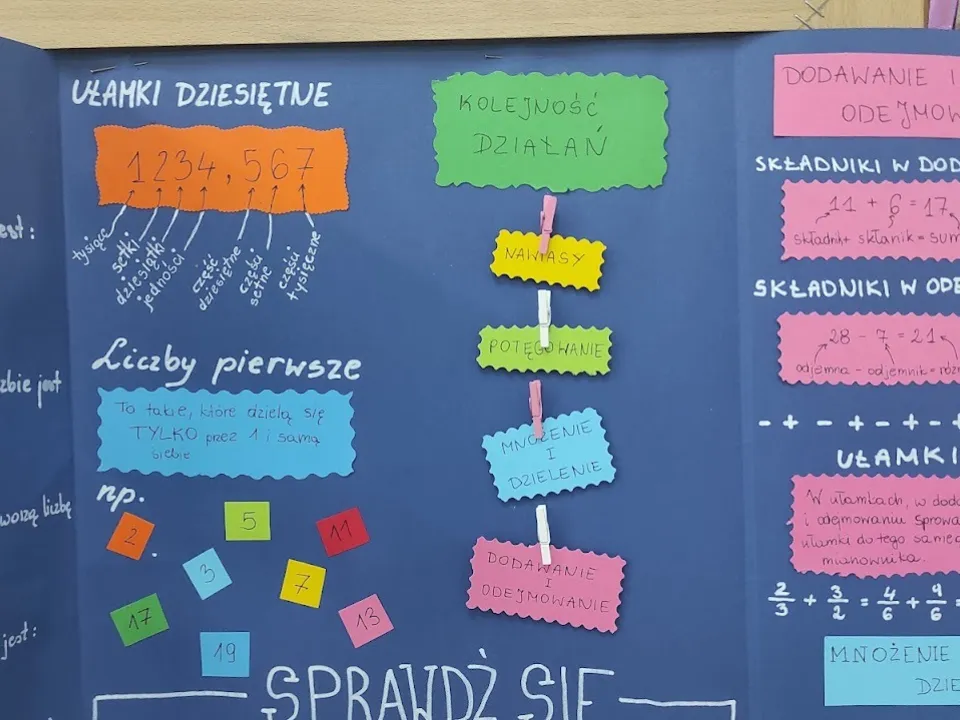 est:
zbie jest
worzą liczbę
jest:
UŁAMKI DZIESIĘTNE
1234,567
tysiące
setki
dziesiątki
jedności
część
dziesiętne
części
setne
części
tysięczne
Liczby pierwsze
To takie, które dzielą się
TYLKO przez 1 i samą
siebie
np.
2
5
11
3
7
17
13
19
KOLEJNOŚĆ
DZIAŁAŃ
NAWIASY
POTĘGOWANIE
MNOŻENIE
I
DZIELENIE
DODAWANIE
I
ODEJMOWANIE
SPRAWDŹ SIĘ
DODAWANIE I
ODEJMOW
SKŁADNIKI W DOD
11 + 6 = 17
składnik+ skłanik = sum
SKŁADNIKI W ODE
28 - 7 = 21
odjemna - odjemnik = różn
- + - + - + - +
UŁAMKI
W ułamkach, w doda
i odejmowaniu sprowa
ułamki do tego same
mianownika.
2/3 + 3/2 = 4/6 + 9/6 =
MNOŻENIE
DZIE